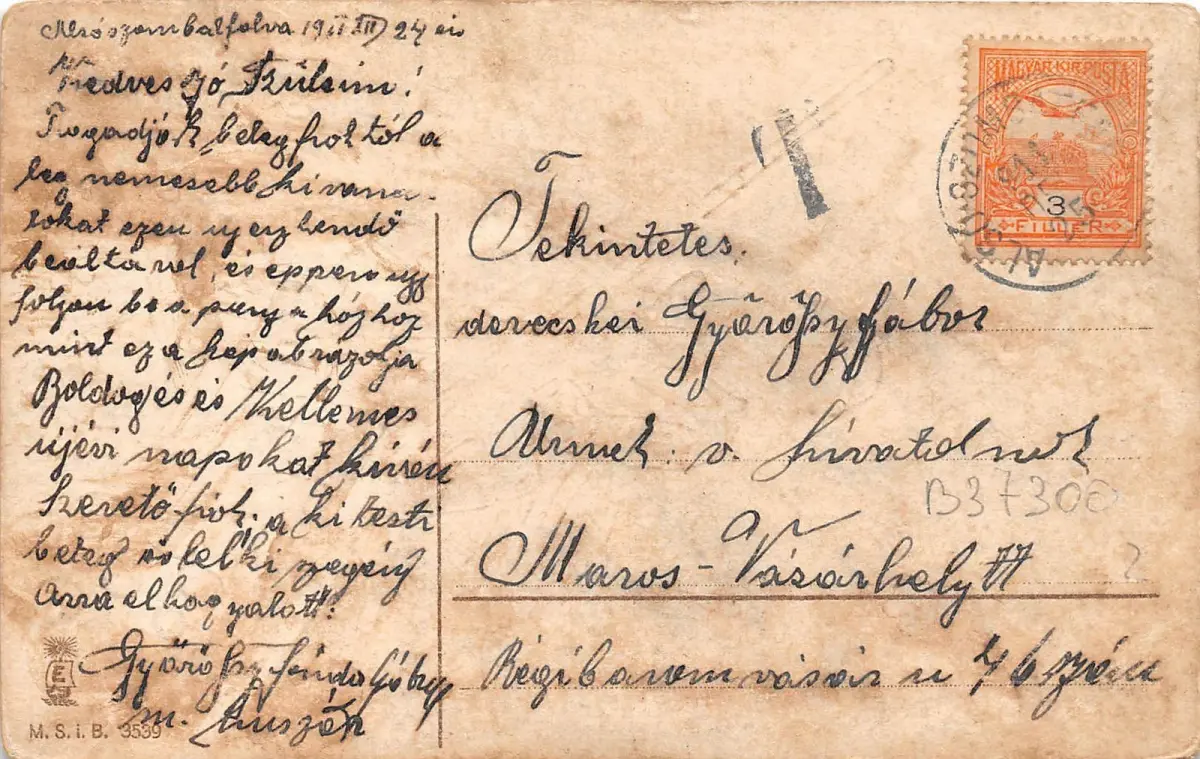 Alsószombatfalva 1911 XII 24 én
Kedves jó Szüleim!
Fogadják beteg fioktól a
leg nemesebb kivana-
tokat ezen uj esztendő
beálta rol, és eppen ugy
foljon be a peny a házhoz
mint ez a kép abrazolja
Boldog és és Kellemes
újévi napokat kiván
szerető fiok. a ki testi
beteg és lelki szegény
arra elhagyatott:
Györőfsy
m. huszár
M. S. i. B. 3539
T
MAGYAR KIR. POSTA
3
FILLÉR
Tekintetes
derecskei Györőfsy Gábor
Urnak v. hivatalnok
B37300
Maros-Vásárhelytt
Régi baromvásár u 76 szám